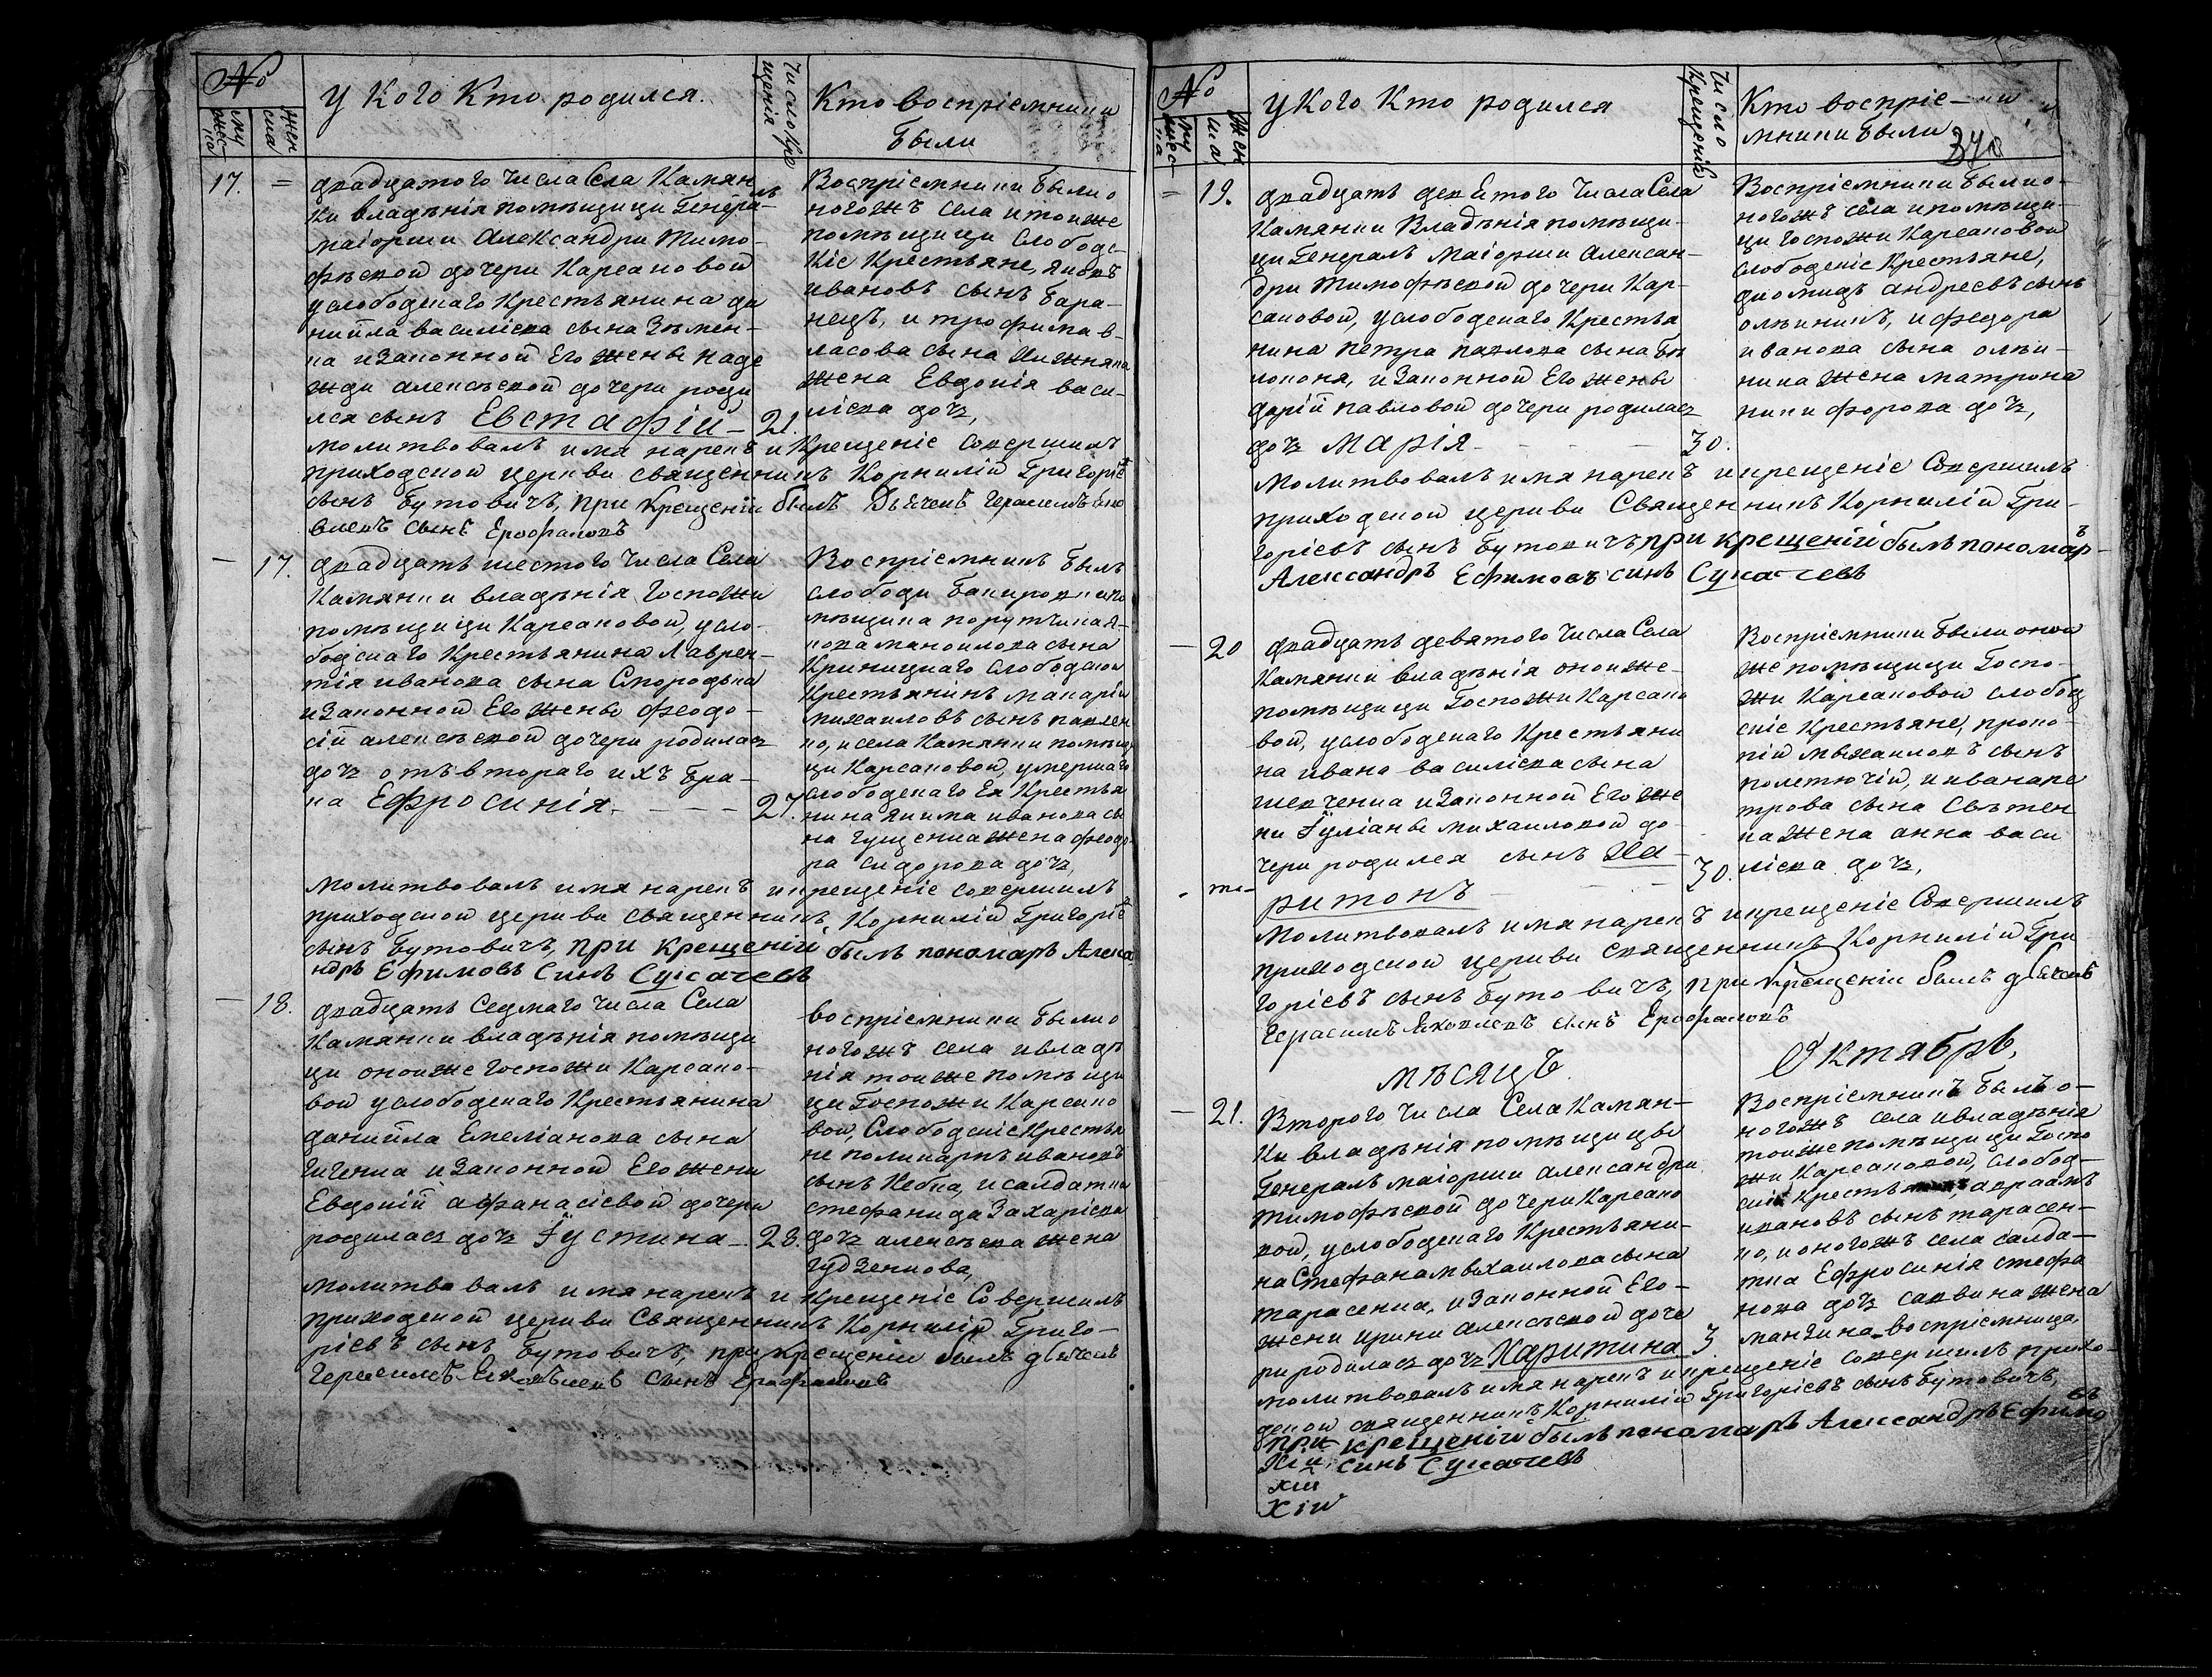 №
му
жес
ка
жен
ска
У Кого Кто родился.
Число кре
щенія
Кто воспріемники
были
17. =
двадцатого числа Села Камян
ки владѣнія помѣщици Генералъ
маіорши Александри Тимо-
фѣевой дочери Карсановой
услободскаго Крестьянина да
нийла василіева сына Зѣмен-
ка изаконной Его жены наде
жди алексѣевой дочери роди
лся сынъ Евстафій — 21.
Воспріемники были о
ногожъ села итоиже
помѣщици Слободс-
кіе Крестьяне, Яковъ
ивановъ сынъ Бара-
нецъ, и трофима в-
ласова сына Хижняка
жена Евдокія васи-
ліева дочъ,
молитвовалъ имя нарекъ и Крещеніе Совершилъ
приходской церкви священникъ Корнилій Григоріе
сынъ Бутовичъ, при Крещеніи былъ Дьячекъ Герасимъ Яко
влевъ сынъ Ерофаловъ
— 17.
двадцать шестого числа Села
Камянки владѣнія Госпожи
помѣщици Карсановой, усло-
бодскаго Крестьянина Лаврен-
тія иванова сына Смородька
изаконной Его жены феодо-
сій алексѣевой дочери родилась
дочъ отъ втораго ихъ бра-
ка Ефросинія. — — — 27.
Воспріемникъ былъ
слободи
помѣщика поручика Я-
кова мануилова сына
Криницкаго Слободской
Крестьянинъ макарій
михаиловъ сынъ павлен
ко, и села Камянки помѣщи
ци Карсановой, умершаго
слободскаго Ея Крестья
нина якима иванова сы
на Гущенка жена феодо
ра сидорова дочъ,
молитвовалъ имя нарекъ икрещеніе совершилъ
приходской церкви священникъ Корнилій Григоріе
сынъ Бутовичъ, при крещеніи былъ пономаръ Алекса
ндръ Ефимовъ синъ Сукачевъ
— 18.
двадцать Седмаго числа Села
Камянки владѣнія помѣщи
ци оноиже госпожи Карсано-
вой услободскаго Крестьянина
данийла Емеліанова сына
Гиченка изаконной Его жени
Евдокій афанасіевой дочери
родилась дочъ Іустина — 28.
воспріемники были о
ногожъ села ивладѣ
нія тоиже помѣщи
ци Госпожи Карсано
вой, Слободскіе Крестья
не поликарпъ ивановъ
сынъ Кебка, исалдатка
стефанида Захаріева
дочъ алексѣева жена
Гудзенкова,
молитвовалъ имя нарекъ и крещеніе Совершилъ
приходской церкви Священникъ Корнилій Григо-
ріевъ сынъ Бутовичъ, при крещеніи былъ дьячекъ
Герасимъ Яковлевъ сынъ Ерофаловъ
№
му
жес
ка
Жен
ска
У Кого Кто родился
Число
Крещенія
Кто воспріе-
мники были
370
= 19.
двадцать девятого числа Села
Камянки Владѣнія помѣщи-
ци Генералъ Маіорши Алексан-
дри Тимофѣевой дочери Кар-
сановой, услободскаго Крестья
нина петра павлова сына Бѣ
локоня, изаконной Его жены
дарій павловой дочери родилась
дочъ Марія — — 30.
Воспріемники были о-
ногожъ села ипомѣщи-
ци госпожи Карсановой
слободскіе Крестьяне,
диомидъ андреевъ сынъ
олѣиникъ, и федора
иванова сына олѣи-
ника жена матрона
никифорова дочъ,
Молитвовалъ имя нарекъ икрещеніе Совершилъ
приходской церкви Священникъ Корнилій Гри-
горіевъ сынъ Бутовичъ при крещеніи былъ пономаръ
Александръ Ефимовъ синъ Сукачевъ
— 20
двадцать девятого числа Села
Камянки владѣнія оноиже
помѣщици Госпожи Карсано
вой, услободскаго Крестьяни
на ивана василіева сына
шевченка изаконной Его же
ни Іуліаны михаиловой до-
чери родился сынъ Ха
ритонъ — — 30.
Воспріемники были оной
же помѣщици Госпо-
жи Карсановой слобод
скіе Крестьяне, проко-
пій михаиловъ сынъ
полетючій, и ивана пе
трова сына Свѣтен
ка жена анна васи
ліева дочъ,
Молитвовалъ имя нарекъ икрещеніе Совершилъ
приходской церкви священникъ Корнилій Гри
горіевъ сынъ Бутовичъ, при Крещеніи былъ дьячекъ
Герасимъ Яковлевъ сынъ Ерофаловъ
мѣсяцъ
Октябрь,
— 21.
Второго числа Села Камян-
ки владѣнія помѣщици
Генералъ маіорши александри
тимофѣевой дочери Карсано
вой, услободскаго Крестьяни-
на Стефана михаилова сына
тарасенка, изаконной Его-
жени ирини алексѣевой доче
ри родилась дочъ Харитина 3.
Воспріемникъ былъ о-
ногожъ села ивладѣнія
тоиже помѣщици Госпо
жи Карсановой, слобод-
скій Крестья авраамъ
ивановъ сынъ тарасен-
ко, и оногожъ села салда-
тка Ефросинія стефа
нова дочъ саввина жена
воспріемница,
молитвовалъ имя нарекъ икрещеніе совершилъ прихо-
дской священникъ Корнилій Григоріевъ сынъ Бутовичъ,
при крещеніи былъ пономаръ Александръ Ефимовъ
синъ Сукачевъ